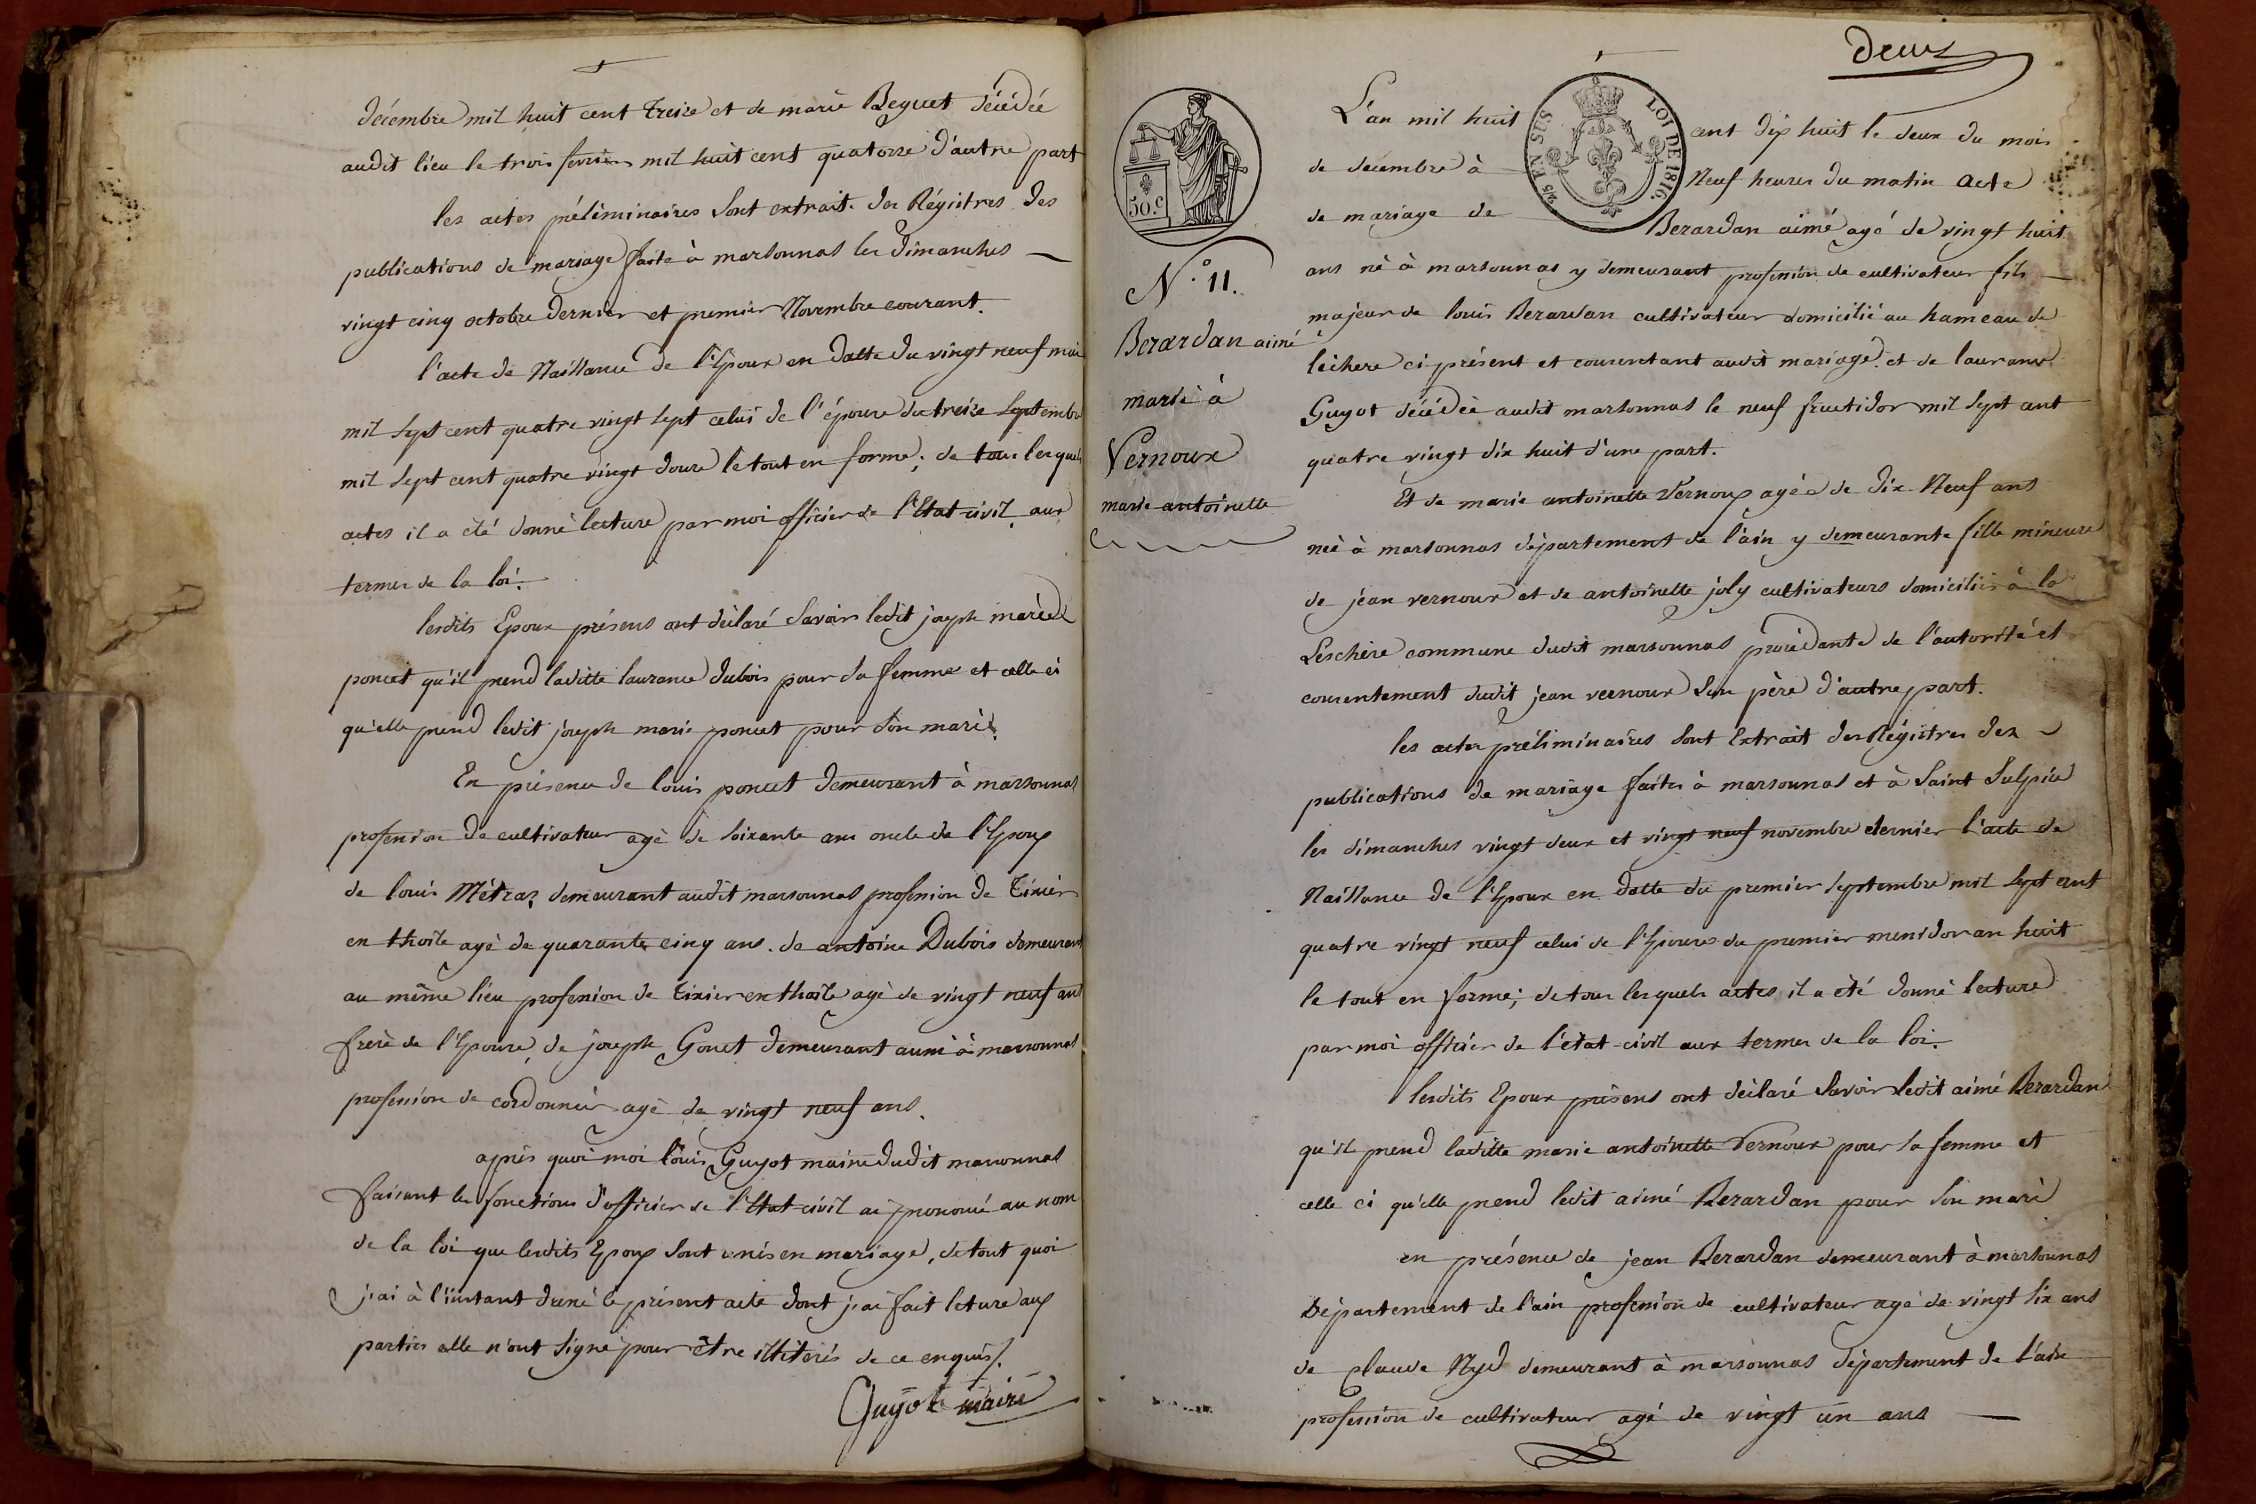 décembre mil huit cent treize et de marie Beguet décédée
audit lieu le trois fevrier mil huit cent quatorze d'autre part
les actes préliminaires sont extrait des Régistres des
publications de mariage faite à marsonnas les dimanches
vingt cinq octobre dernier et premier Novembre courant.
l'acte de Naissance de l'Epoux en datte du vingt neuf mai
mil sept cent quatre vingt sept celui de l'épouse du treize septembre
mil sept cent quatre vingt douze le tout en forme; de tous lesquels
actes il a été donné lecture par moi officier de l'Etat civil aux
termes de la loi.
lesdits Epoux présens ont déclaré savoir ledit joseph marie
poncet qu'il prend laditte laurance dubois pour sa femme et celle ci
qu'elle prend ledit joseph marie poncet pour son mari.
En présence de louis poncet demeurant à marsonnas
profession de cultivateur agé de soixante ans oncle de l'Epoux
de louis Métraz demeurant audit marsonnas profession de tixier
en thoile agé de quarante cinq ans. de antoine Dubois demeurant
au même lieu profession de tixier en thoile agé de vingt neuf ans
frere de l'Epouse, de joseph Gonet demeurant aussi à marsonnas
profession de cordonnier agé de vingt neuf ans.
après quoi moi louis Guyot maire dudit marsonnas
faisant les fonctions d'officier de l'Etat civil ai prononcé au nom
de la loi que lesdits Epoux sont unis en mariage, de tout quoi
j'ai à l'instant dressé le présent acte dont j'ai fait lecture aux
parties elle n'ont signé pour être illiterés de ce enquis.
Guyot maire
deux
50.c
2/5 EN SUS
LOI DE 1816.
N.° 11.
Berardan aimé
marié à
Vernoux
marie antoinette
L'an mil huit cent dix huit le deux du mois
de décembre à Neuf heures du matin acte
de mariage de Berardan aimé agé de vingt huit
ans né à marsonnas y demeurant profession de cultivateur fils
majeur de louis Berardan cultivateur domicilié au hameau de
léchere ci présent et consentant audit mariage. et de laurance
Guyot décédée audit marsonnas le neuf fructidor mil sept cent
quatre vingt dix huit d'une part.
Et de marie antoinette Vernoux agée de dix Neuf ans
neé à marsonnas département de l'ain y demeurante fille mineure
de jean vernoux et de antoinette joly cultivateurs domiciliés à la
Leschère commune dudit marsonnas procédante de l'autorité et
consentement dudit jean vernoux son père d'autre part.
les actes préliminaires sont Extrait des Régistres des
publications de mariage faites à marsonnas et à Saint Sulpice
les dimanches vingt deux et vingt neuf novembre dernier l'acte de
Naissance de l'Epoux en datte du premier septembre mil sept cent
quatre vingt neuf celui de l'Epouse du premier messidor an huit
le tout en forme; de tous lesquels actes il a été donné lecture
par moi officier de l'état civil aux termes de la loi.
lesdits Epoux présens ont déclaré savoir ledit aimé Berardan
qu'il prend laditte marie antoinette Vernoux pour sa femme et
celle ci qu'elle prend ledit aimé Berardan pour son mari
en présence de jean Berardan demeurant à marsonnas
Département de l'ain profession de cultivateur agé de vingt six ans
de Claude Nyd demeurant à marsonnas département de l'ain
profession de cultivateur agé de vingt un ans